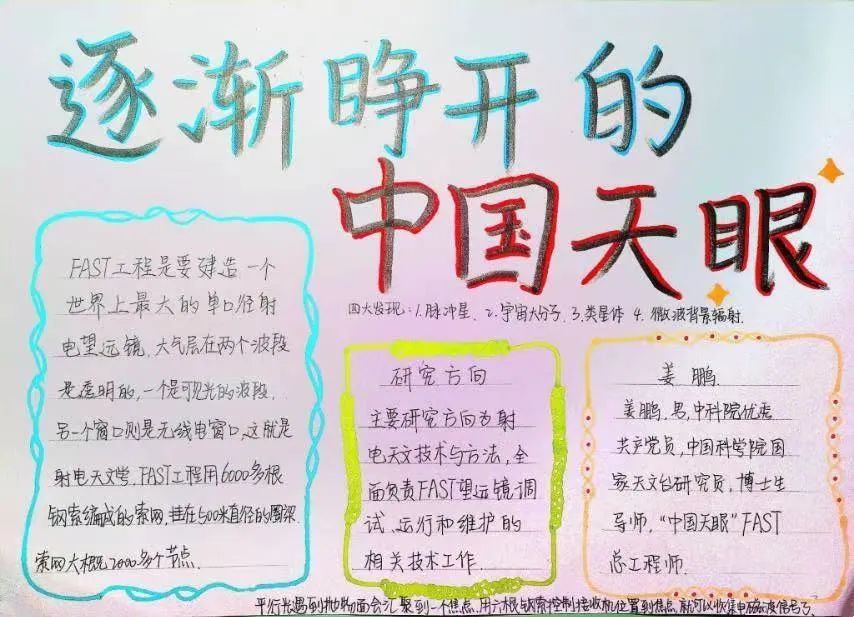 逐渐睁开的
中国天眼
四大发现:1.脉冲星、2.宇宙大分子、3.类星体 4.微波背景辐射.
FAST工程是要建造一个
世界上最大的单口径射
电望远镜、大气层在两个波段
是透明的,一个是可见光的波段、
另一个窗口则是无线电窗口、这就是
射电天文学、FAST工程用6000多根
钢索编成的索网,挂在500米直径的圈梁
索网大概2000多个节点.
研究方向
主要研究方向为射
电天文技术与方法,全
面负责FAST望远镜调
试、运行和维护的
相关技术工作.
姜鹏
姜鹏.男,中科院优秀
共产党员,中国科学院国
家天文台研究员,博士生
导师,“中国天眼”FAST
总工程师.
平行光遇到抛物面会汇聚到一个焦点、用六根钢索控制接收机位置到焦点,就可以收集电磁波信号了、